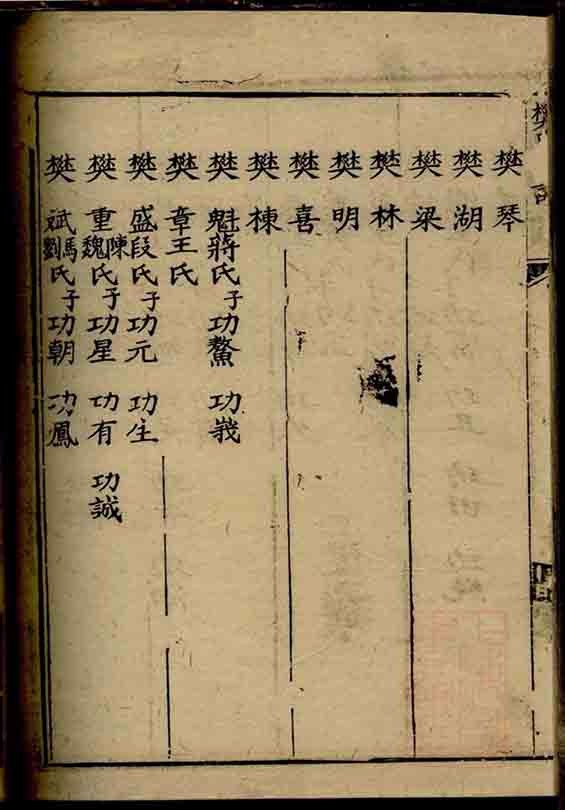 樊琴
樊湖
樊梁
樊林
樊明
樊喜
樊棟
樊魁蔣氏子功鰲 功峩
樊章王氏
樊盛段氏子功元 功生
樊重陳魏氏子功星 功有 功誠
樊斌馬劉氏子功朝 功鳳